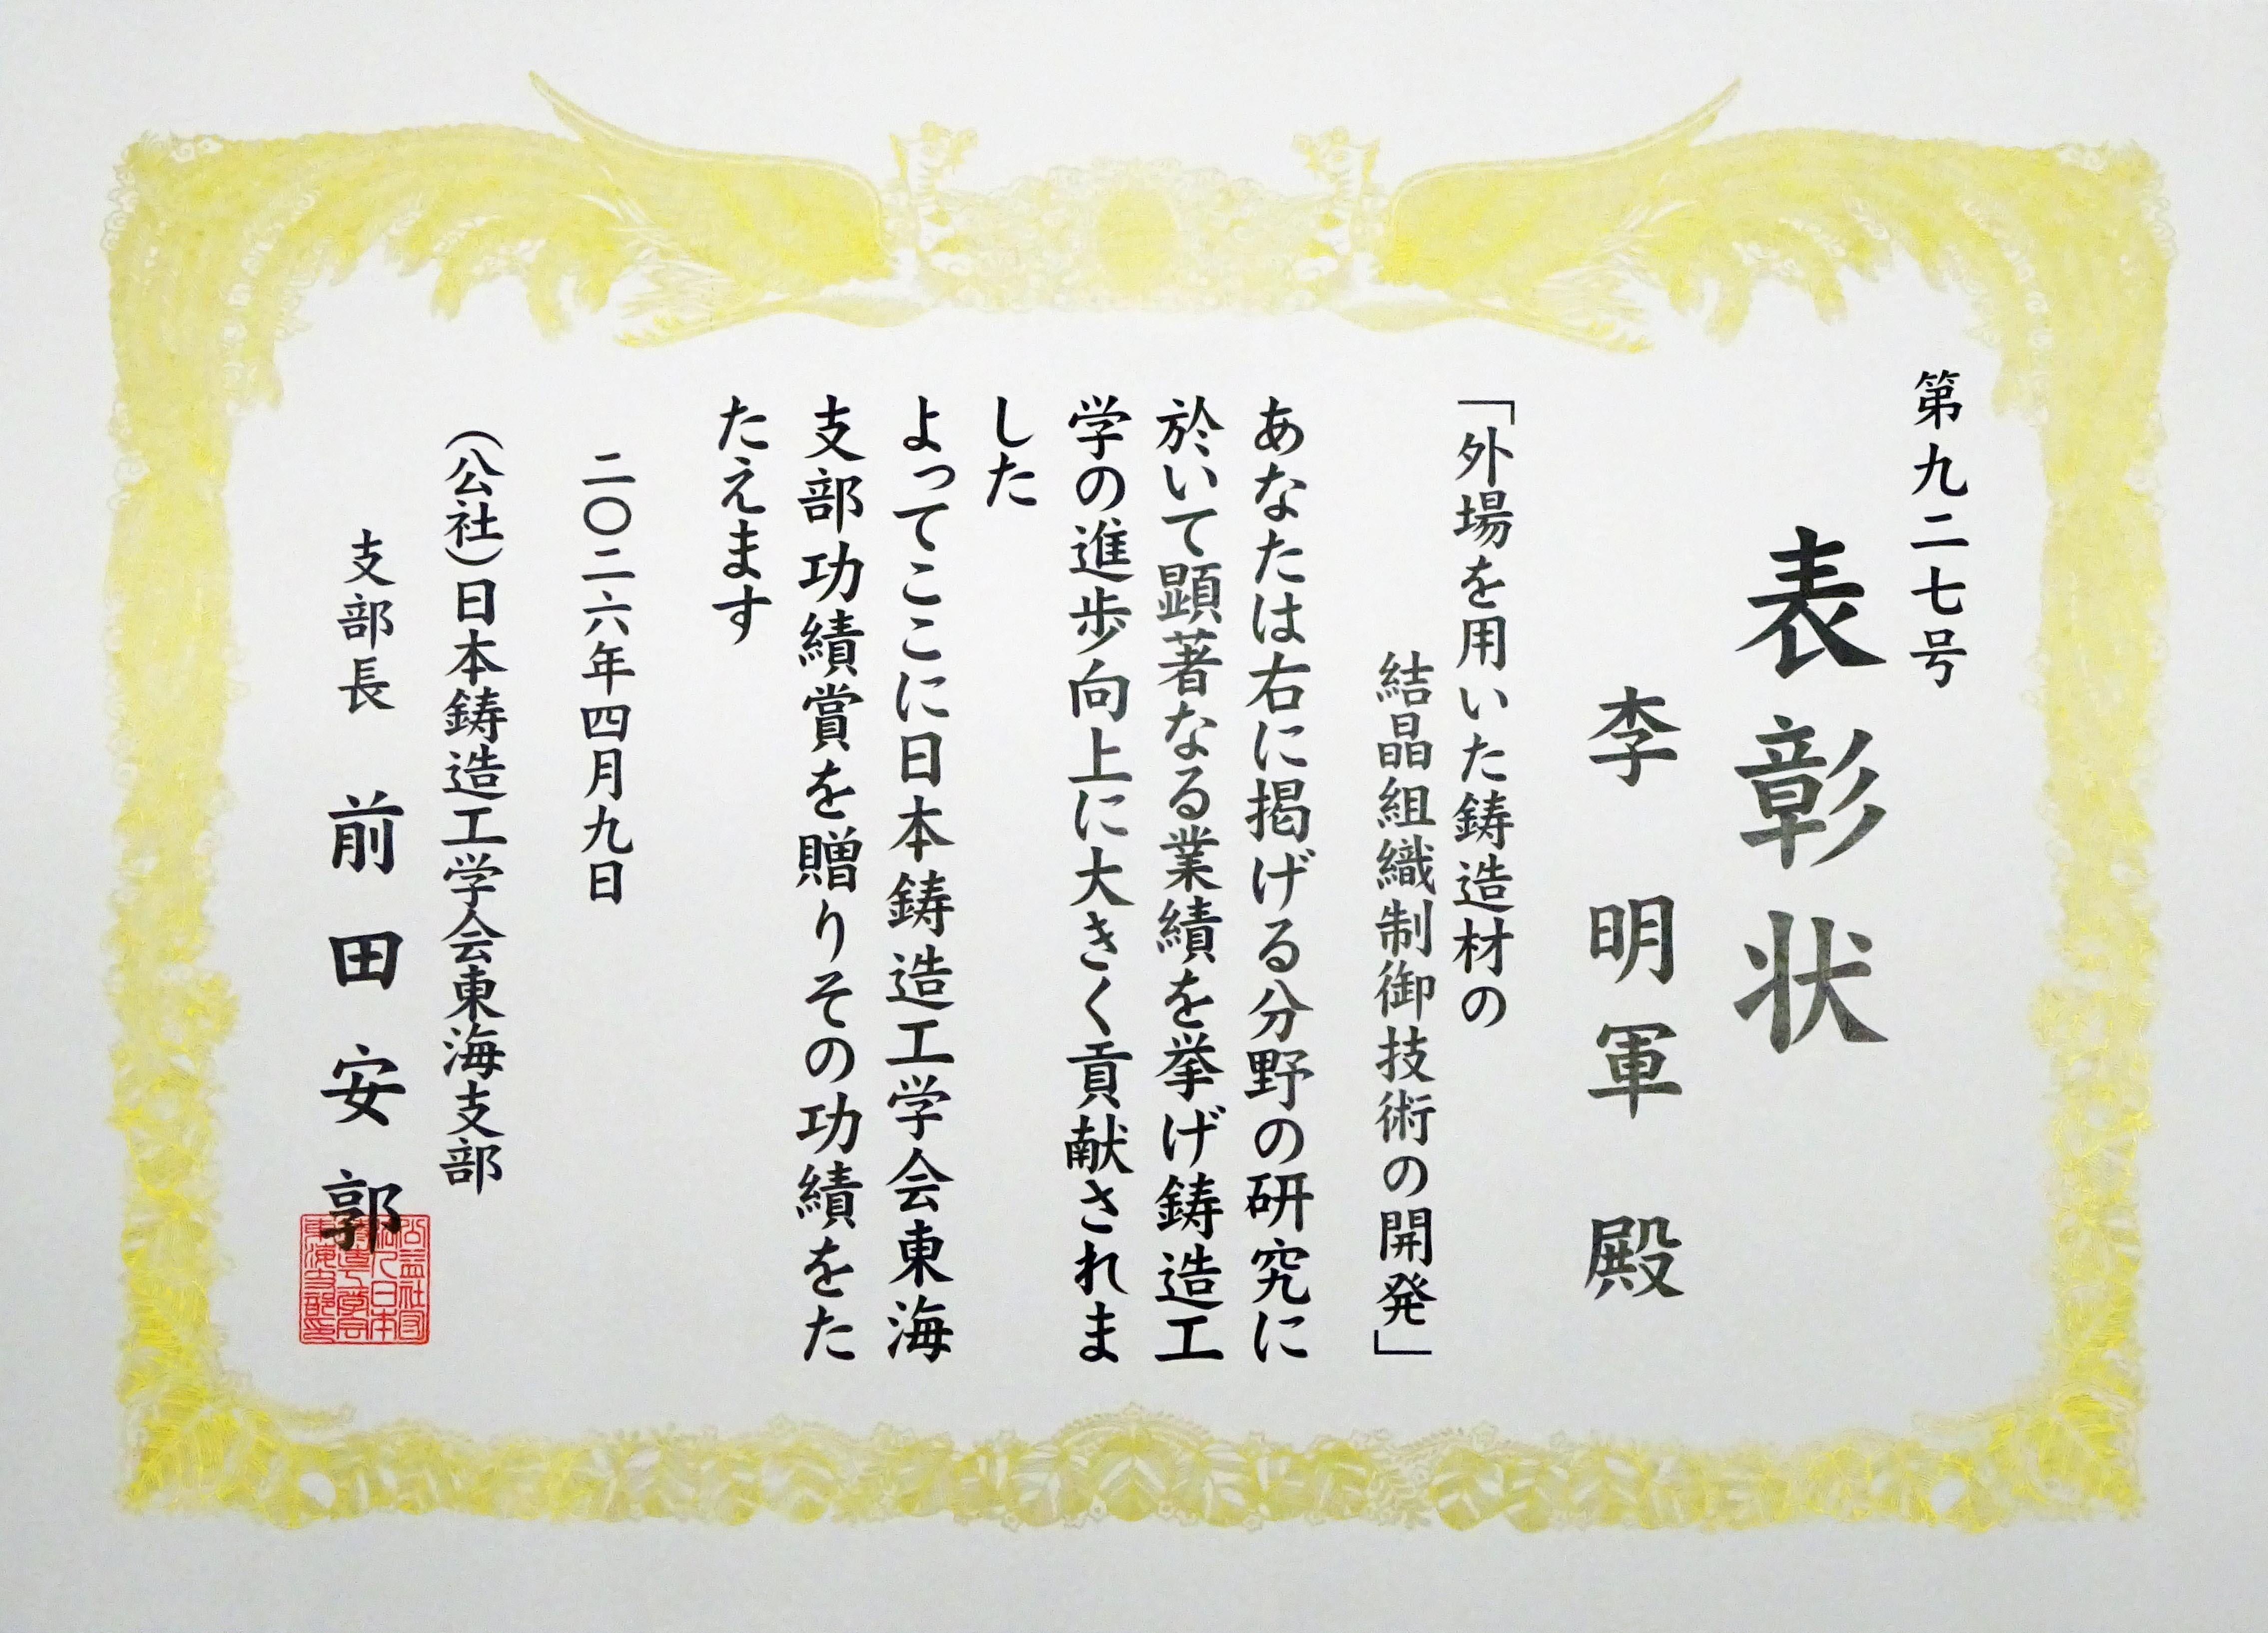 第九二七号
表彰状
李明軍 殿
「外場を用いた鋳造材の
結晶組織制御技術の開発」
あなたは右に掲げる分野の研究に
於いて顕著なる業績を挙げ鋳造工
学の進歩向上に大きく貢献されま
した
よってここに日本鋳造工学会東海
支部功績賞を贈りその功績をた
たえます
二〇二六年四月九日
(公社)日本鋳造工学会東海支部
支部長 前田安郭
公益社団
法人日本
鋳造工学会
東海支部印